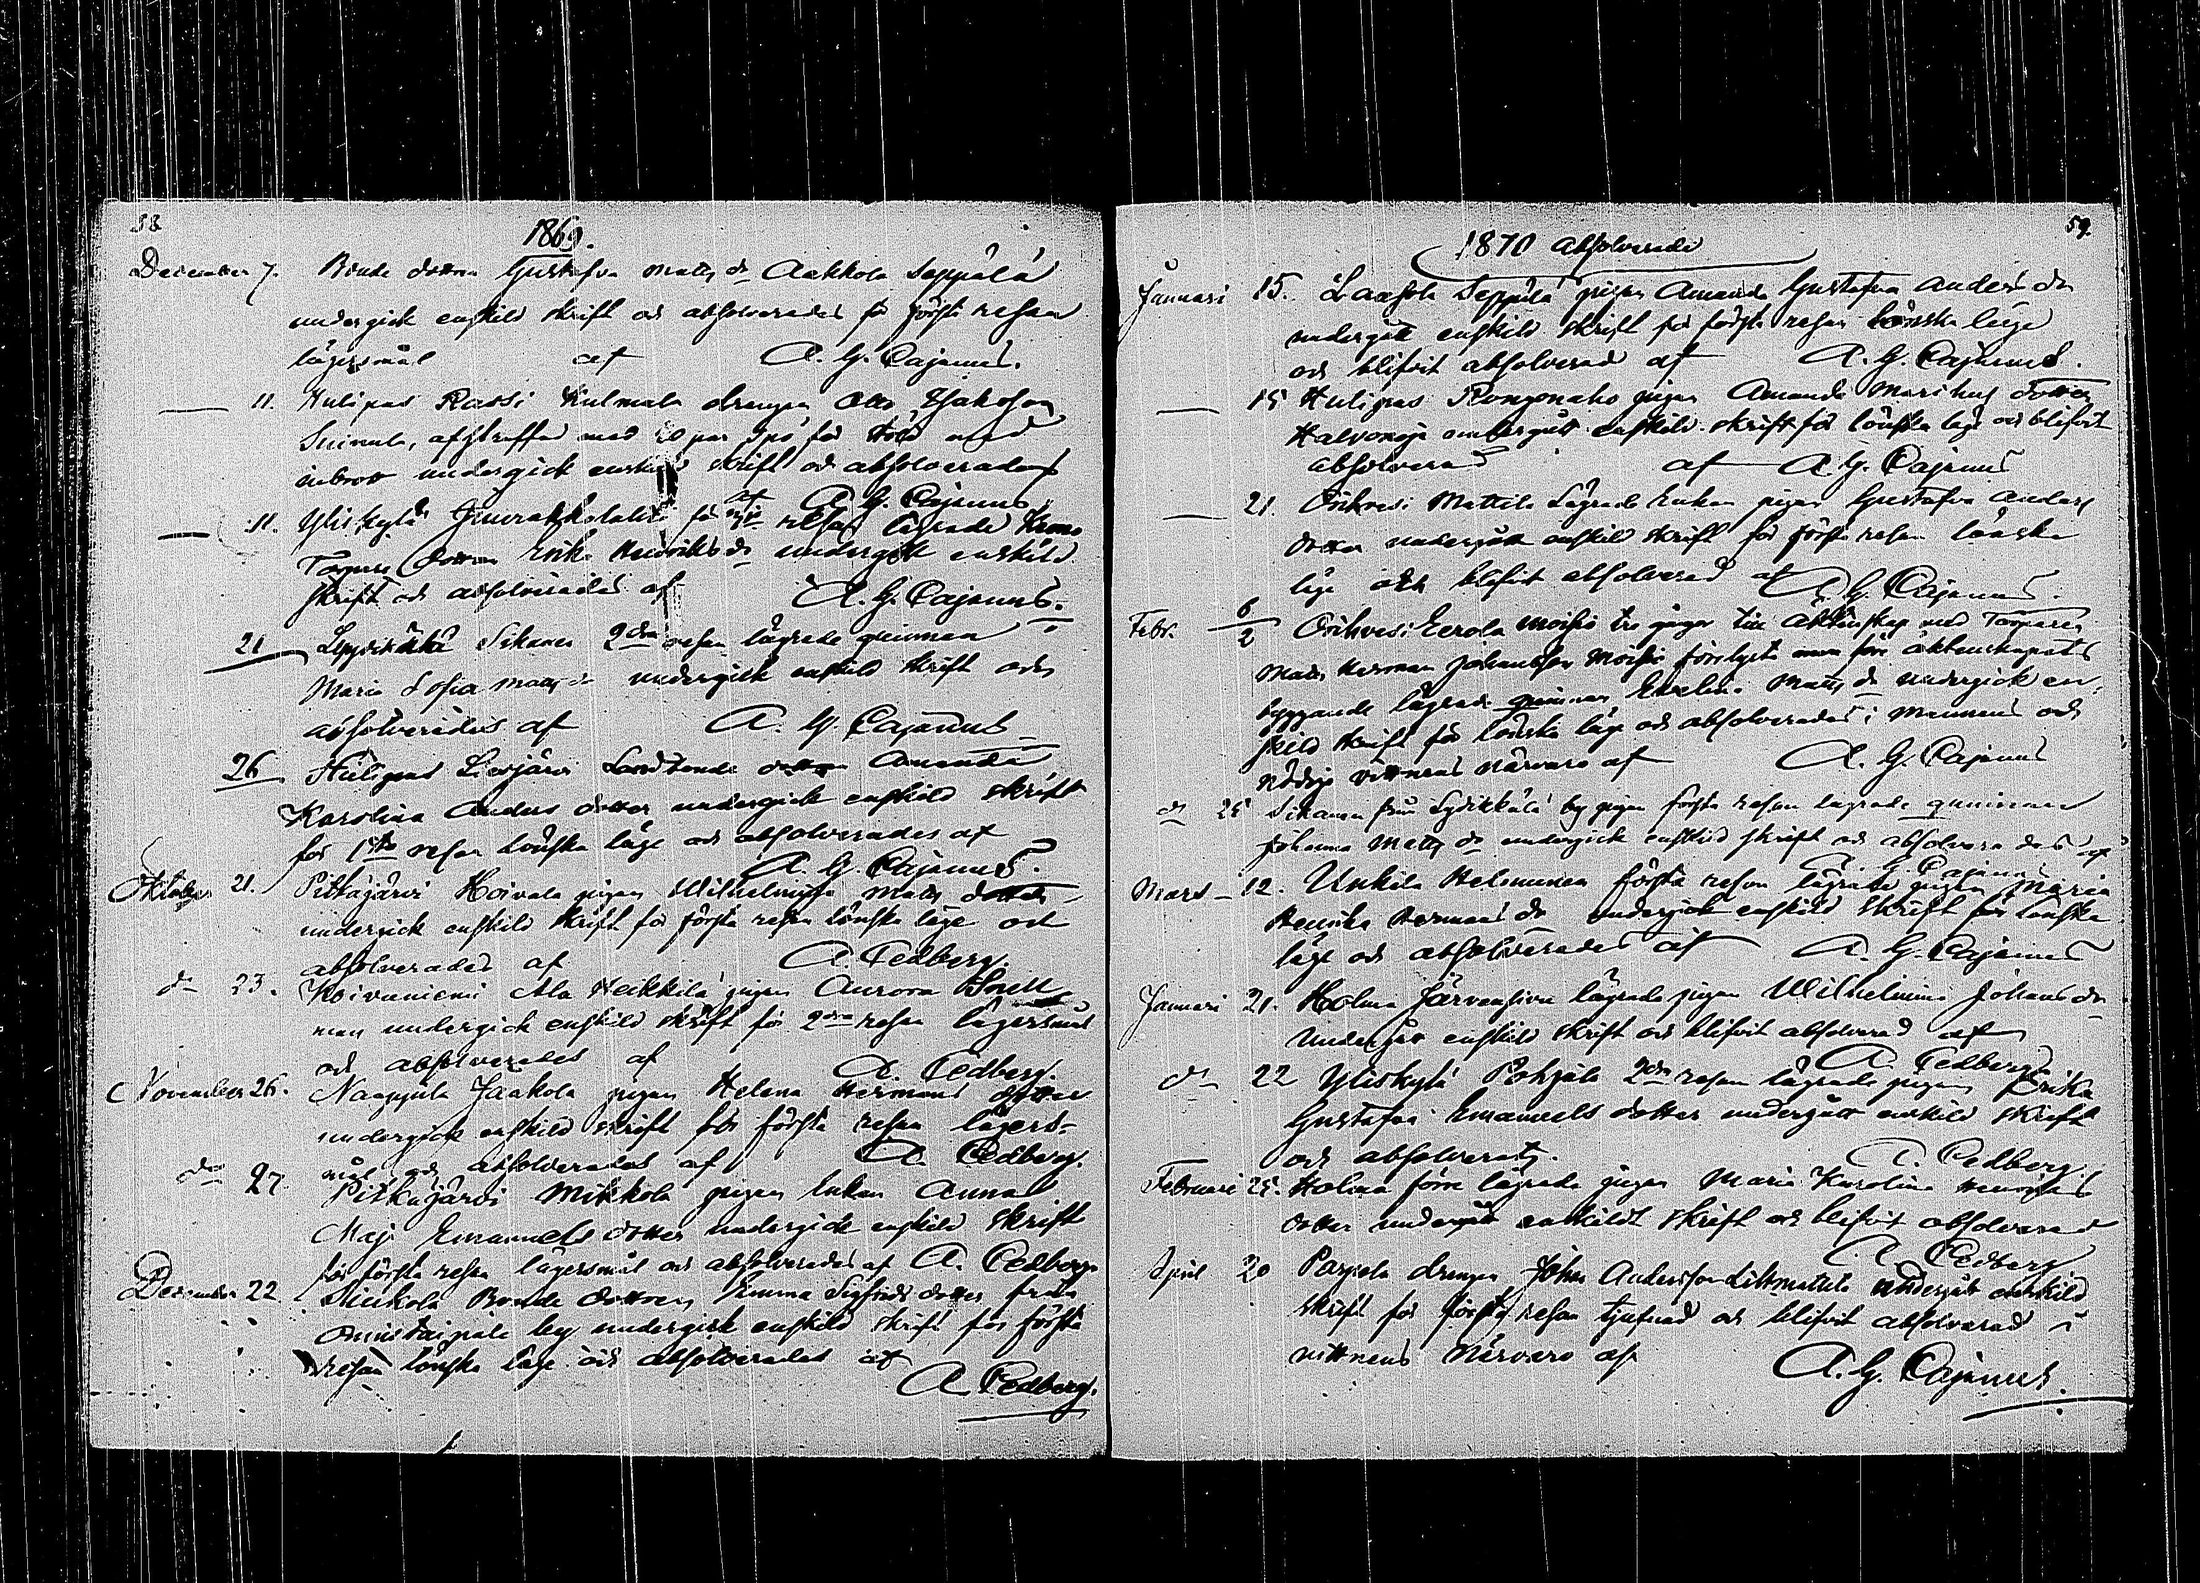 58
1869.
December 7. Bonde dottren Gustafva Matts dr Aakkola Seppälä
undergick enskild skrift och absolverades för första resan
lägersmål af A. G. Cajanus.
— 11. Hulipas Rassi Kulmala drengen Otto Isaksson
Suinula, afstraffad med 20 par spö för stöld med
inbrott undergick enskild skrift och absolverades
af A. G. Cajanus
— 11. Yliskylä för resan lägrade
Torpare dottren Erika Henriks dr undergått enskild
skrift och absolverades af A. G. Cajanus.
21 Sikanen 2dra resan lägrade qvinnan
Maria Sofia Matts dr undergick enskild skrift och
absolverades af A. G. Cajanus
26 Hulipas Landbonde dotter Amanda
Karolina Anders dotter undergick enskild skrift
för 1sta resan lönska läge och absolverades af
A. G. Cajanus.
Oktober 21. Pitkäjärvi Hoivala pigan Wilhelmina Matts dotter
undergick enskild skrift för första resan lönska läge och
absolverades af A. Cedberg.
do 23. Koivuniemi Ala Heikkilä pigan Aurora Snell
man undergick enskild skrift för 2dra resan lägersmål
och absolverades af A. Cedberg.
November 26. Naappila Jaakola pigan Helena Hermans dotter
undergick enskild skrift för första resan lägers-
mål och absolverades af A. Cedberg.
do 27 Pitkäjärvi Mikkola pigan enkan Anna
Maja Emanuels dotter undergick enskild skrift
för första resan lägersmål och absolverades af A. Cedberg
December 22. Bonde dottren Emma Sigfrids dotter från
Onnistaipale by undergick enskild skrift för första
resan lönska läge och absolverades af
A. Cedberg.
59.
1870 absolverade
Januari 15. Seppälä pigan Amanda Gustafva Anders dr
undergått enskild skrift för första resan lönska läge
och blifvit absolverad af A. G. Cajanus.
— 15 Hulipas Rongonaho pigan Amanda dotter
undergått enskild skrift för lönska läge och blifvit
absolverad af A. G. Cajanus
— 21. Orihvesi Mattila lägrade enkan pigan Gustafva Anders
dotter undergått enskild skrift för första resan lönska
läge och blifvit absolverad af A. G. Cajanus.
Febr. 6/2 Orihvesi Eerola moisio tre gånger till äktenskap med Torparen
Matts Herman Johansson Moisio förelysta men före äktenskapets
byggande lägrade qvinnan Evelina Matts dr undergick en-
skild skrift för lönska läge och absolverades i mannens och
nödige vittnens närvaro af A. G. Cajanus
do 25 Sikanen från by pigan första resan lägrade qvinnan
Johanna Matts dr undergick enskild skrift och absolverades af
A. G. Cajanus
Mars — 12. Unkila Heleminen första resan lägrade pigan Maria
Henrika Hermans dr undergick enskild skrift för lönska
läge och absolverades af A. G. Cajanus
Januari 21. Holma Järvensivu lägrade pigan Wilhelmina Johans dr
undergått enskild skrift och blifvit absolverad af
A. Cedberg
do 22 Yliskylä Pohjala 2dra resan lägrade pigan Erika
Gustafva Emanuels dotter undergått enskild skrift
och absolverats. A. Cedberg.
Februari 25. Holma förra lägrade pigan Maria Karolina Henriks
dotter undergått enskildt skrift och blifvit absolverad
A. Cedberg
April 20 Parpola drengen Johan Andersson Lillmattila undergått enskild
skrift för första resan tjufnad och blifvit absolverad i
vittnens närvaro af A. G. Cajanus.